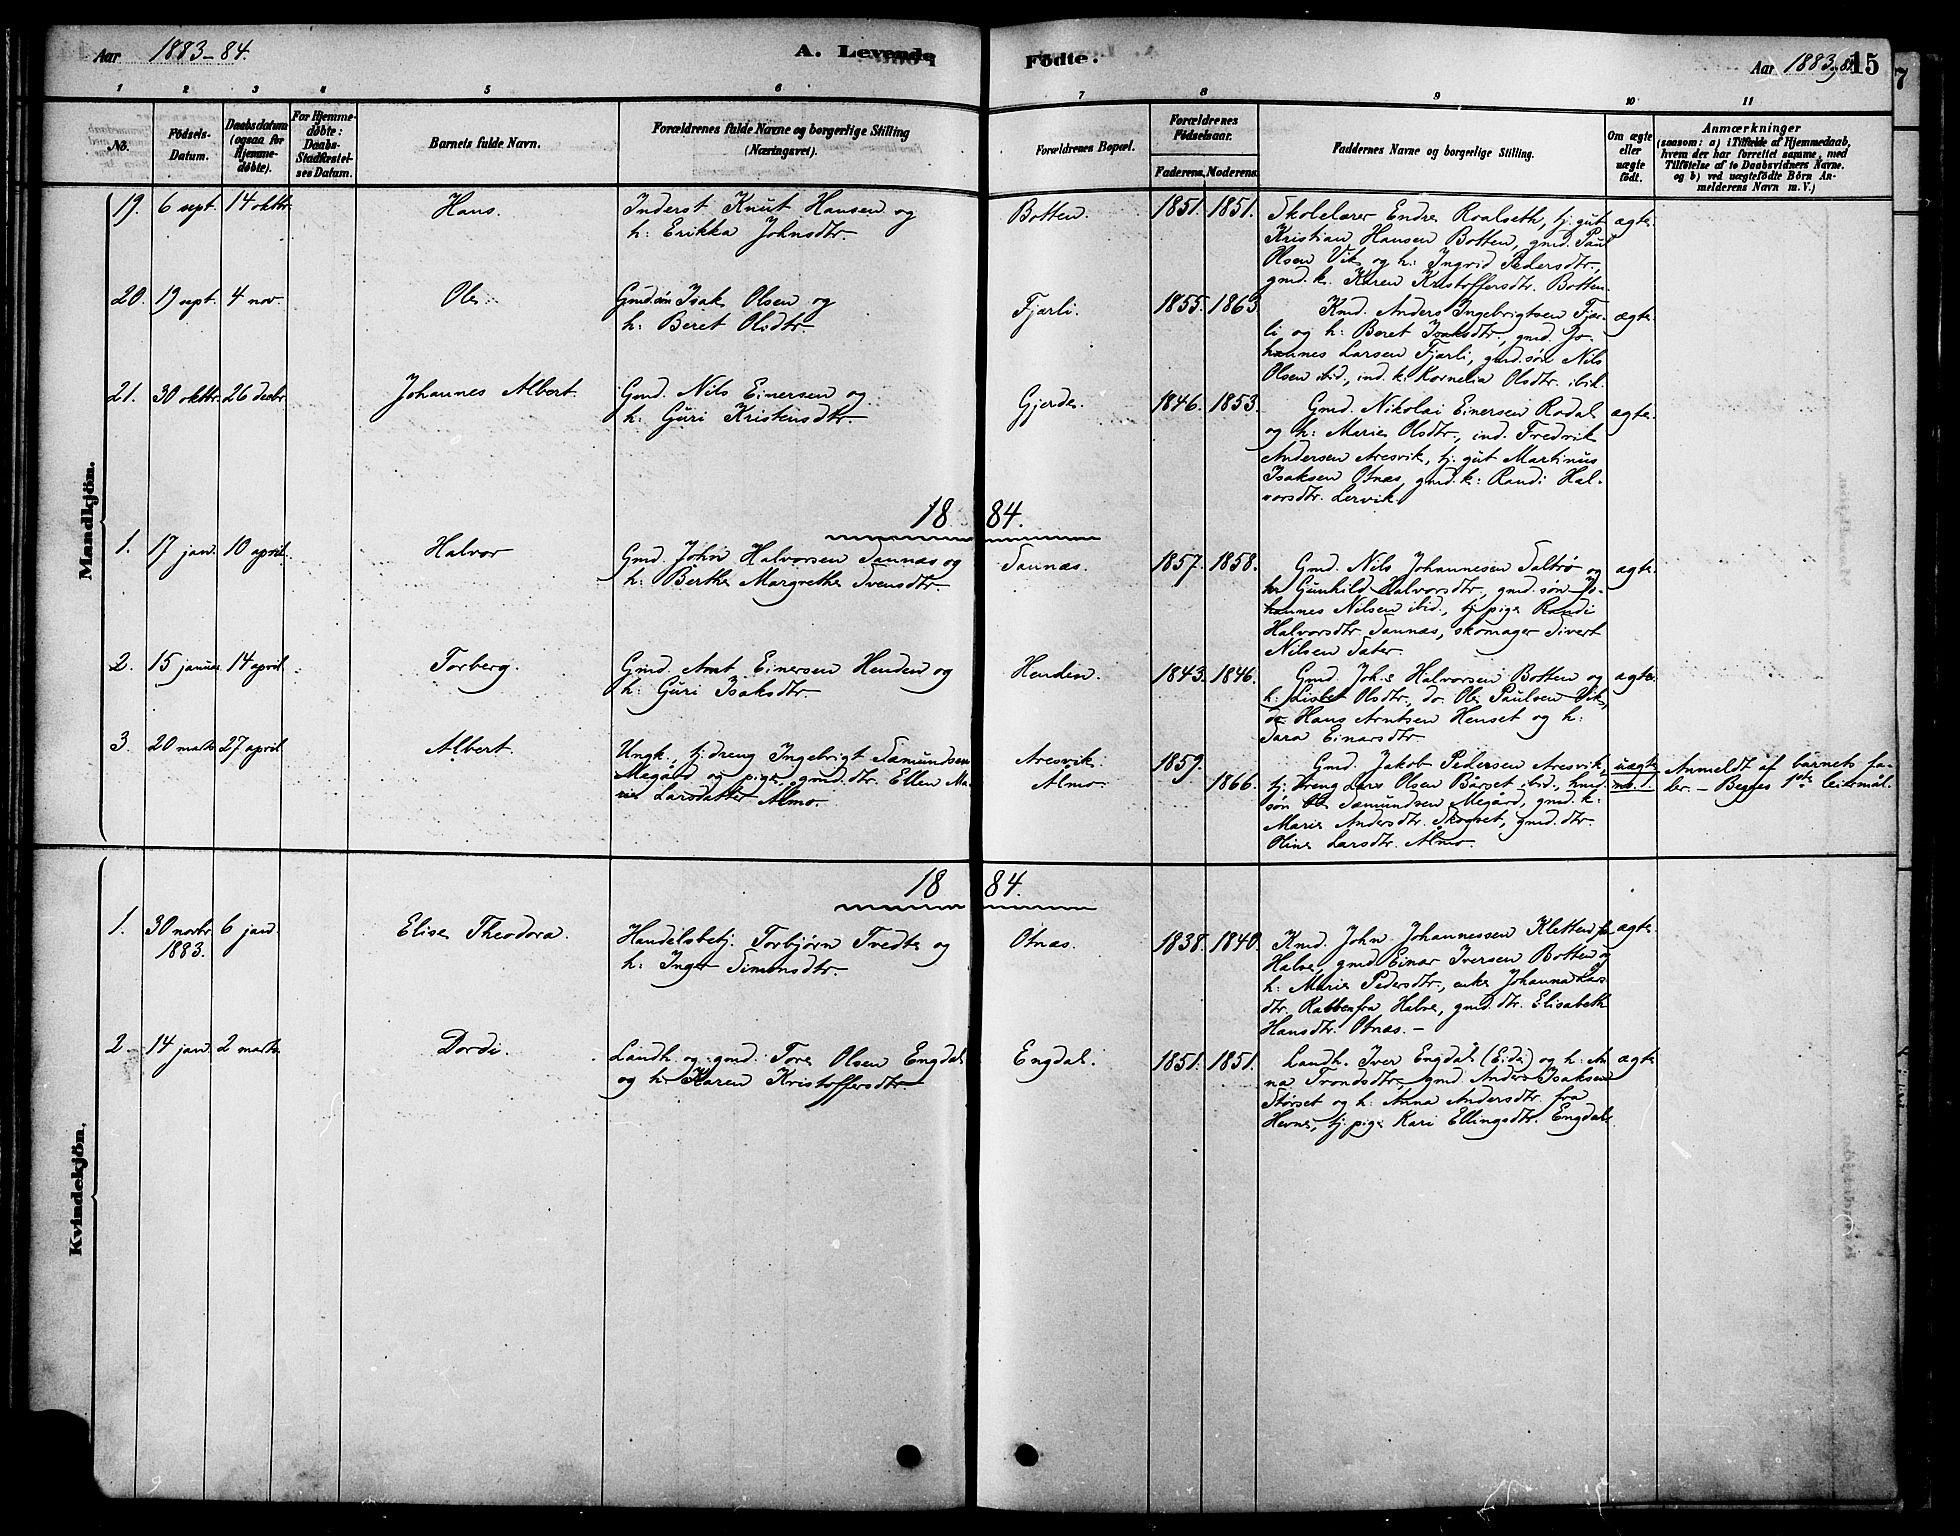 Aar 1883-84.
A. Levende Fødte.
Aar 1883-84. 15
7
1 2 3 4 5 6 7 8 9 10 11
No.
Fødsels-Datum.
Daabsdatum (ogsaa for Hjemmedøbte).
For Hjemmedøbte: Daabs-Stadfæstelses Datum.
Barnets fulde Navn.
Forældrenes fulde Navne og borgerlige Stilling (Næringsvei).
Forældrenes Bopæl.
Forældrenes Fødselsaar.
Faderens. Moderens.
Faddernes Navne og borgerlige Stilling.
Om ægte eller uægte født.
Anmærkninger
(saasom: a) i Tilfælde af Hjemmedaab, hvem der har forrettet samme, med Tilføielse af to Daabsvidners Navne. og b) ved uægtefødte Børn Anmelderens Navn m. V.)
Mandkjøn.
19. 6 sept. 14 oktbr. Hans. Inderst Knut Hansen og
h: Erikka Johnsdtr.
Botten. 1851. 1851.
Skolelærer Endre Roalseth, tj. gut
Kristian Hansen Botten, gmd. Paul
Olsen Vik og h: Ingrid Pedersdtr.,
gmd. k. Karen Kristoffersdtr. Botten.
ægte.
20. 19 sept. 4 nov. Ole. Gmd.søn Isak Olsen og
h: Beret Olsdtr
Fjærli. 1855. 1863.
Kmd. Anders Ingebrigtsen Fjær-
li og h: Beret Isaksdtr, gmd. Jo-
hannes Larsen Fjærli, gmd.søn Nils
Olsen ibid., ind. k: Kornelia Olsdtr. ibid.
ægte.
21. 30 oktbr. 26 decbr. Johannes Albert. Gmd. Nils Einersen og
h: Guri Kristensdtr.
Gjerde. 1846. 1853.
Gmd. Nikolai Einersen Rodal
og h: Marie Olsdtr., ind. Fredrik
Andersen Aresvik, tj. gut Martinus
Isaksen Otnæs, gmd. k: Randi Hal-
vorsdtr. Lervik.
ægte.
1884.
1. 17 jan. 10 april. Halvor Gmd. John Halvorsen Sannæs og
h: Berthe Margrethe Svensdtr.
Sannæs. 1857. 1858.
Gmd. Nils Johannesen Saltrø og
h: Gunhild Halvorsdtr., gmd.søn Jo-
hannes Nilsen ibid., tj. pige Randi
Halvorsdtr Sannæs, skomager Sivert
Nilsen Sæter.
ægte.
2. 15 januar 14 april. Torberg. Gmd. Arnt Einersen Henden og
h: Guri Isaksdtr
Henden. 1843. 1846.
Gmd. Joh.s Halvorsen Botten og
h: Lisbet Olsdtr., do. Ole Paulsen Vik,
do Hans Arntsen Henset og h:
Sara Einarsdtr
ægte.
3. 20 marts 27 april. Albert. Ungk., tj.dreng Ingebrigt Sæmundsen
Megård og pige, gmd.dtr. Ellen Ma-
rie Larsdatter Almo.
Aresvik.
Almo.
1859. 1866.
Gmd. Jakob Pedersen Aresvik,
tj. dreng Lars Olsen Bårset ibid., hmd.
søn Ole Sæmundsen Megård, gmd. k:
Marie Andersdtr. Skogset, gmd. dtr.
Oline Larsdtr. Almo.
uægte
no. 1.
Anmeldt af barnets fa-
der. - Begges 1ste leiermål.
Kvindekjøn.
1884.
1. 30 novbr. 1883. 6 jan. Elise Theodora. Handelsbetj. Torbjørn Tvedte og
h: Inger Simonsdtr
Otnæs. 1838. 1840.
Kmd. John Johannessen Kletten fra
Halse, gmd Einar Iversen Botten og
h: Marie Pedersdtr., enke Johanna Lars
dtr. Rabben fra Halse, gmd. dtr. Elisabeth
Hansdtr. Otnæs. -
ægte.
2. 14 jan. 2 marts. Dordi. Landh. og gmd. Tore Olsen Engdal
og h: Karen Kristoffersdtr
Engdal. 1851. 1851.
Landh. Iver Engdal (Eide) og h: An
na Trondsdtr, gmd Anders Isaksen
Størset og h: Anna Andersdtr. fra
Hevne, tj. pige Kari Ellingsdtr. Engdal.
ægte